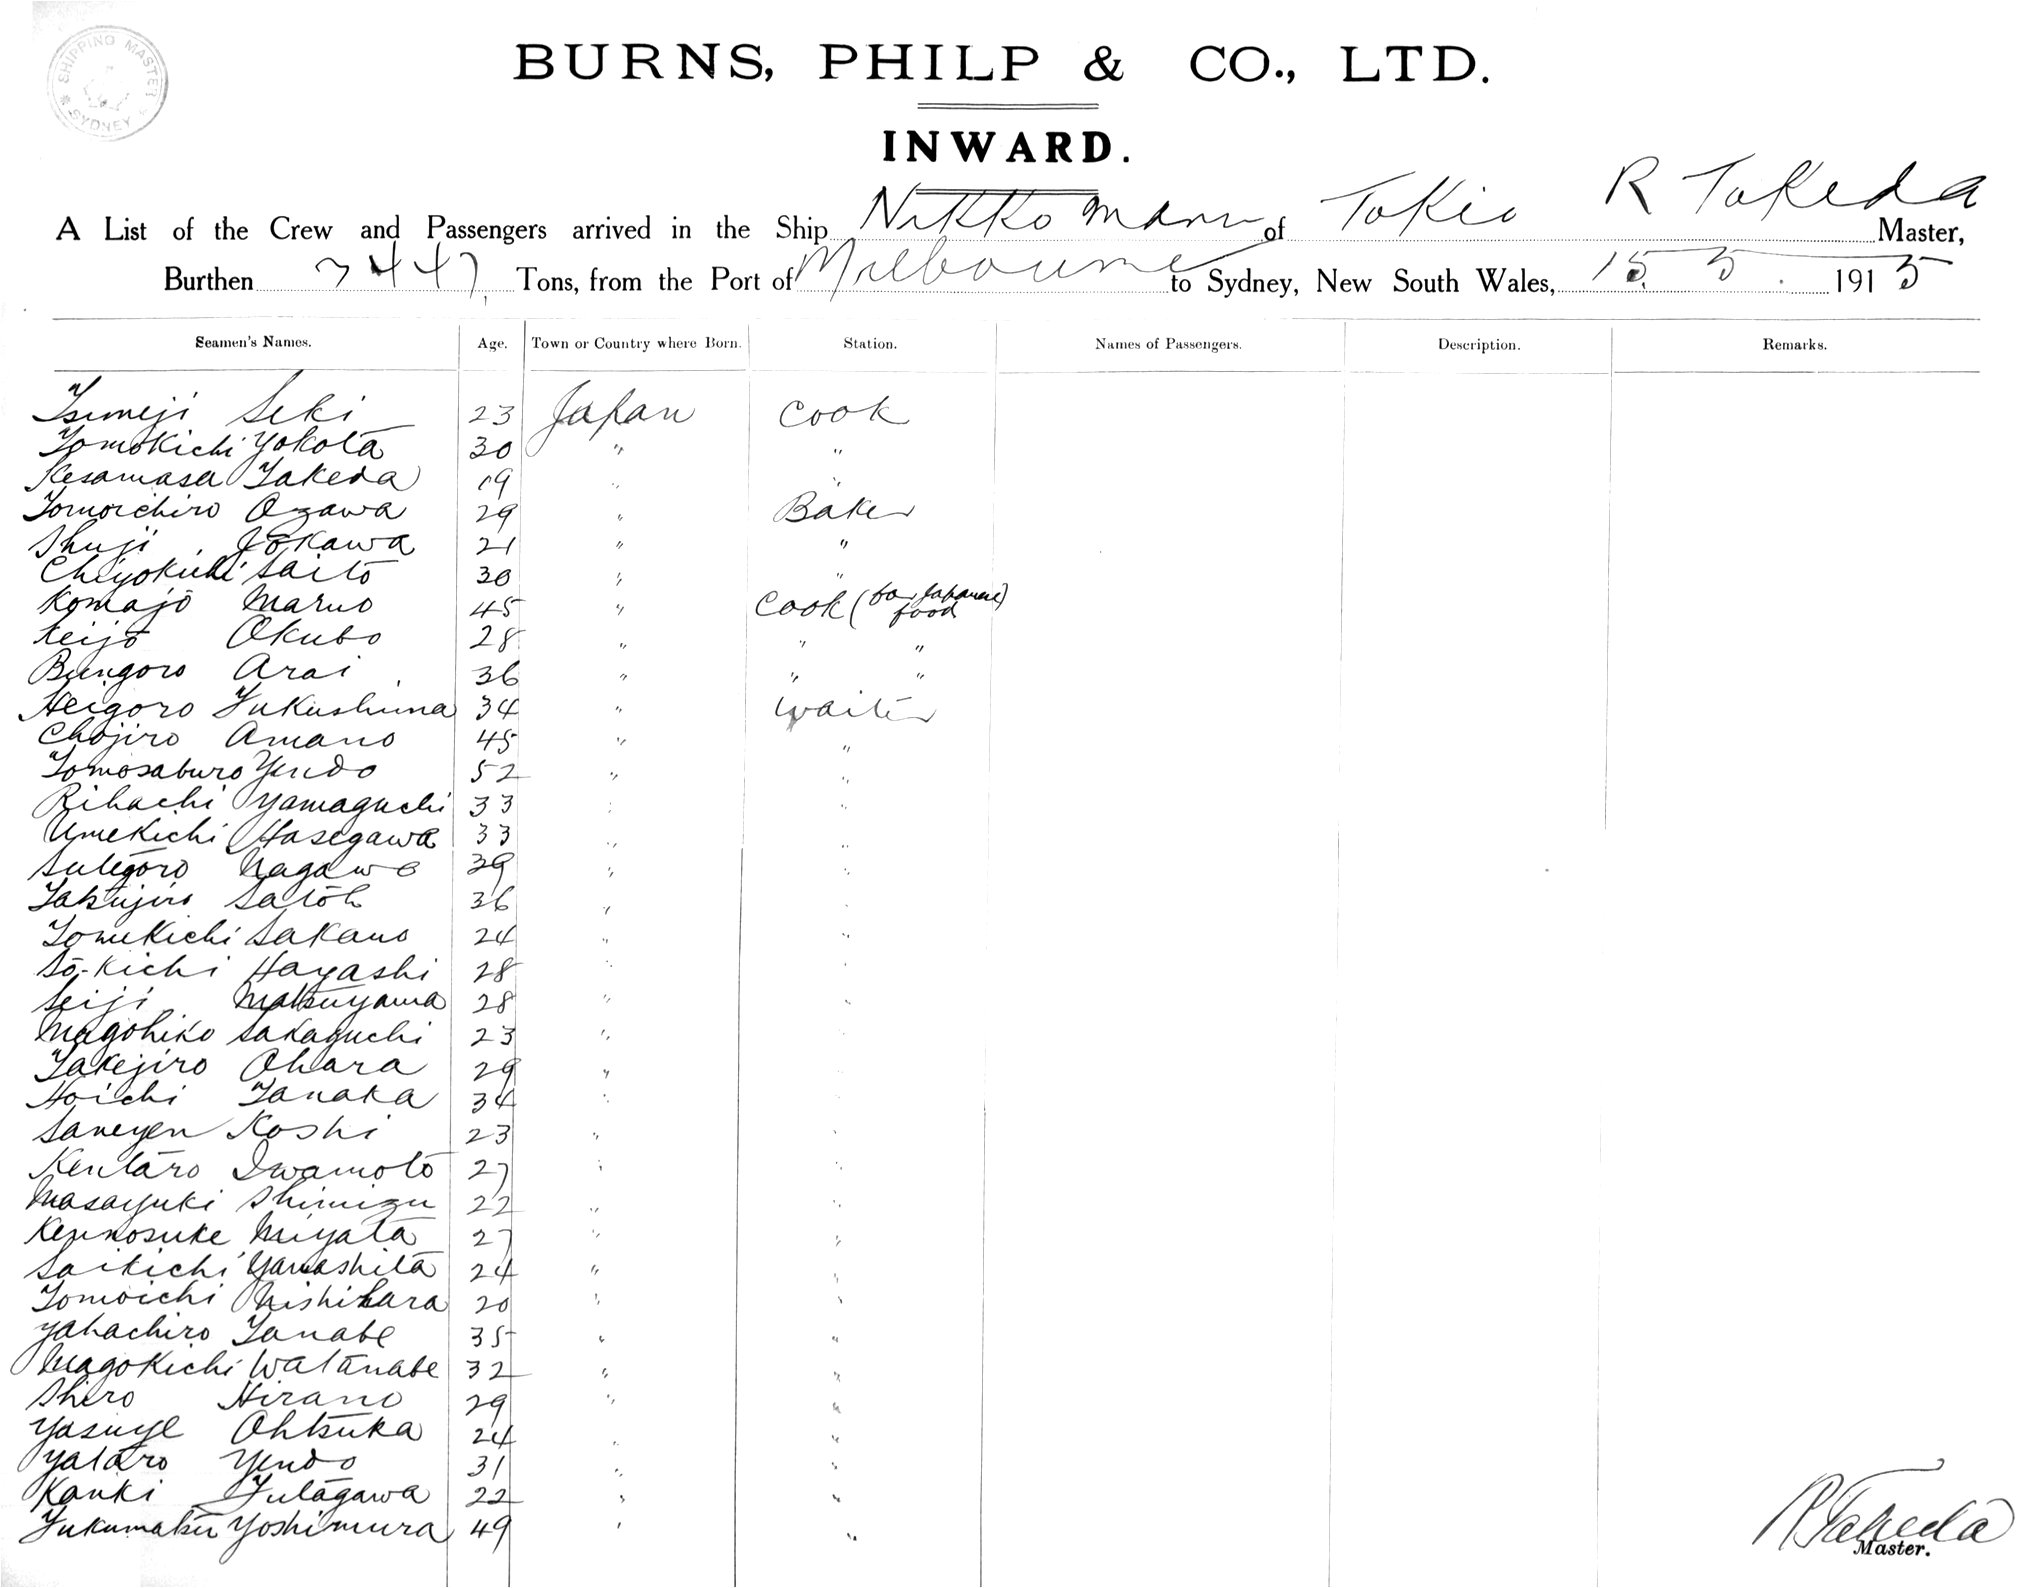 SHIPPING MASTER
SYDNEY
BURNS, PHILP & CO., LTD.
INWARD.
A List of the Crew and Passengers arrived in the Ship Nikko Maru of Tokio R Takeda Master,
Burthen 3447 Tons, from the Port of Melbourne to Sydney, New South Wales, 15. 5. 1915
Seamen's Names. Age. Town or Country where Born. Station. Names of Passengers. Description. Remarks.
Tsuneji Seki 23 Japan Cook
Tomokichi Yokota 30 " "
Kesamasa Takeda 19 " "
Tomoichiro Ozawa 29 " Baker
Shuji Jokawa 21 " "
Chiyokichi Saito 30 " "
Komajō Maruo 45 " Cook (for Japanese food)
Keijo Okubo 28 " " "
Bungoro Arai 36 " " "
Heigoro Fukushima 34 " Waiter
Chojiro Amano 45 " "
Tomosaburo Yendo 52 " "
Rihachi Yamaguchi 33 " "
Umekichi Hasegawa 33 " "
Sutegoro Nagawo 39 " "
Takujiro Satōh 36 " "
Tomekichi Sakano 24 " "
Sō-kichi Hayashi 28 " "
Seiji Matsuyama 28 " "
Magohiko Sakaguchi 23 " "
Takejiro Ohara 29 " "
Hoichi Tanaka 34 " "
Saneyen Koshi 23 " "
Kentaro Iwamoto 27 " "
Masayuki Shimizu 22 " "
Kennosuke Miyata 27 " "
Saikichi Yamashita 24 " "
Tomoichi Nishihara 20 " "
Yahachiro Tanabe 35 " "
Magokichi Watanabe 32 " "
Shiro Hirano 29 " "
Yasuye Ohtsuka 24 " "
Yataro Yendo 31 " "
Kanki Futagawa 22 " "
Fukumatsu Yoshimura 49 " "
R Takeda
Master.